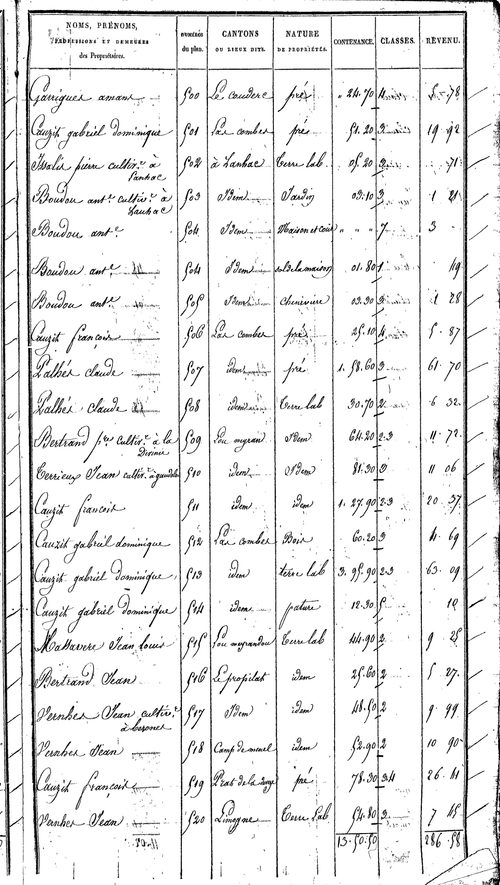 NOMS, PRÉNOMS, PROFESSIONS ET DEMEURES des Propriétaires. | NUMÉROS du plan. | CANTONS OU LIEUX DITS. | NATURE DE PROPRIÉTÉS. | CONTENANCE. | CLASSES. | REVENU.
Garrigues amans 500 Le couderc pré " 24.70 4 5 78
Cauzit gabriel dominique 501 Las combes pré 51.20 3 19 92
Issalis pierre cultiv.r à Lanhac 502 à Lanhac Terre lab 05.20 3 71
Boudou ant.e cultiv.r à Lanhac 503 Idem Jardin 03.10 3 1 21
Boudou ant.e 504 Idem Maison et cour " " " 7 3
Boudou ant.e 504 Idem sol de la maison 01.80 1 49
Boudou ant.e 505 Idem cheneviere 03.30 3 1 28
Cauzit françois 506 Las combes pré 25.10 4 5. 87
Palhés claude 507 idem pré 1. 58.60 3 61. 70
Palhés claude 508 idem Terre lab 30.70 2 6 32
Bertrand p.re cultiv.r à la 509 Lou meyran Idem 64.20 2.3 11. 72
Terrieux Jean cultiv.r 510 idem Idem 81.30 3 11 06
Cauzit francois 511 idem idem 1. 27.90 2.3 20 37
Cauzit gabriel dominique 512 Las combes Bois 60.20 3 4. 69
Cauzit gabriel dominique 513 idem terre lab 3. 95.90 2.3 63. 09
Cauzit gabriel dominique 514 idem pature 12.30 5 12
Mallavere Jean Louis 515 Lou meyrandou Terre lab 44.90 2 9 25
Bertrand Jean 516 Le propilat idem 25.60 2 5 27.
Vernhes Jean cultiv.r 517 Idem idem 48.50 2 9. 99
Vernhes Jean 518 Camp de menel idem 52.90 2 10 90
Cauzit francois 519 Prat de la pré 78.30 3.4 26. 41
Vernhes Jean 520 Limogne Terre Lab 54.80 3 7 45
13.50.50 286.58